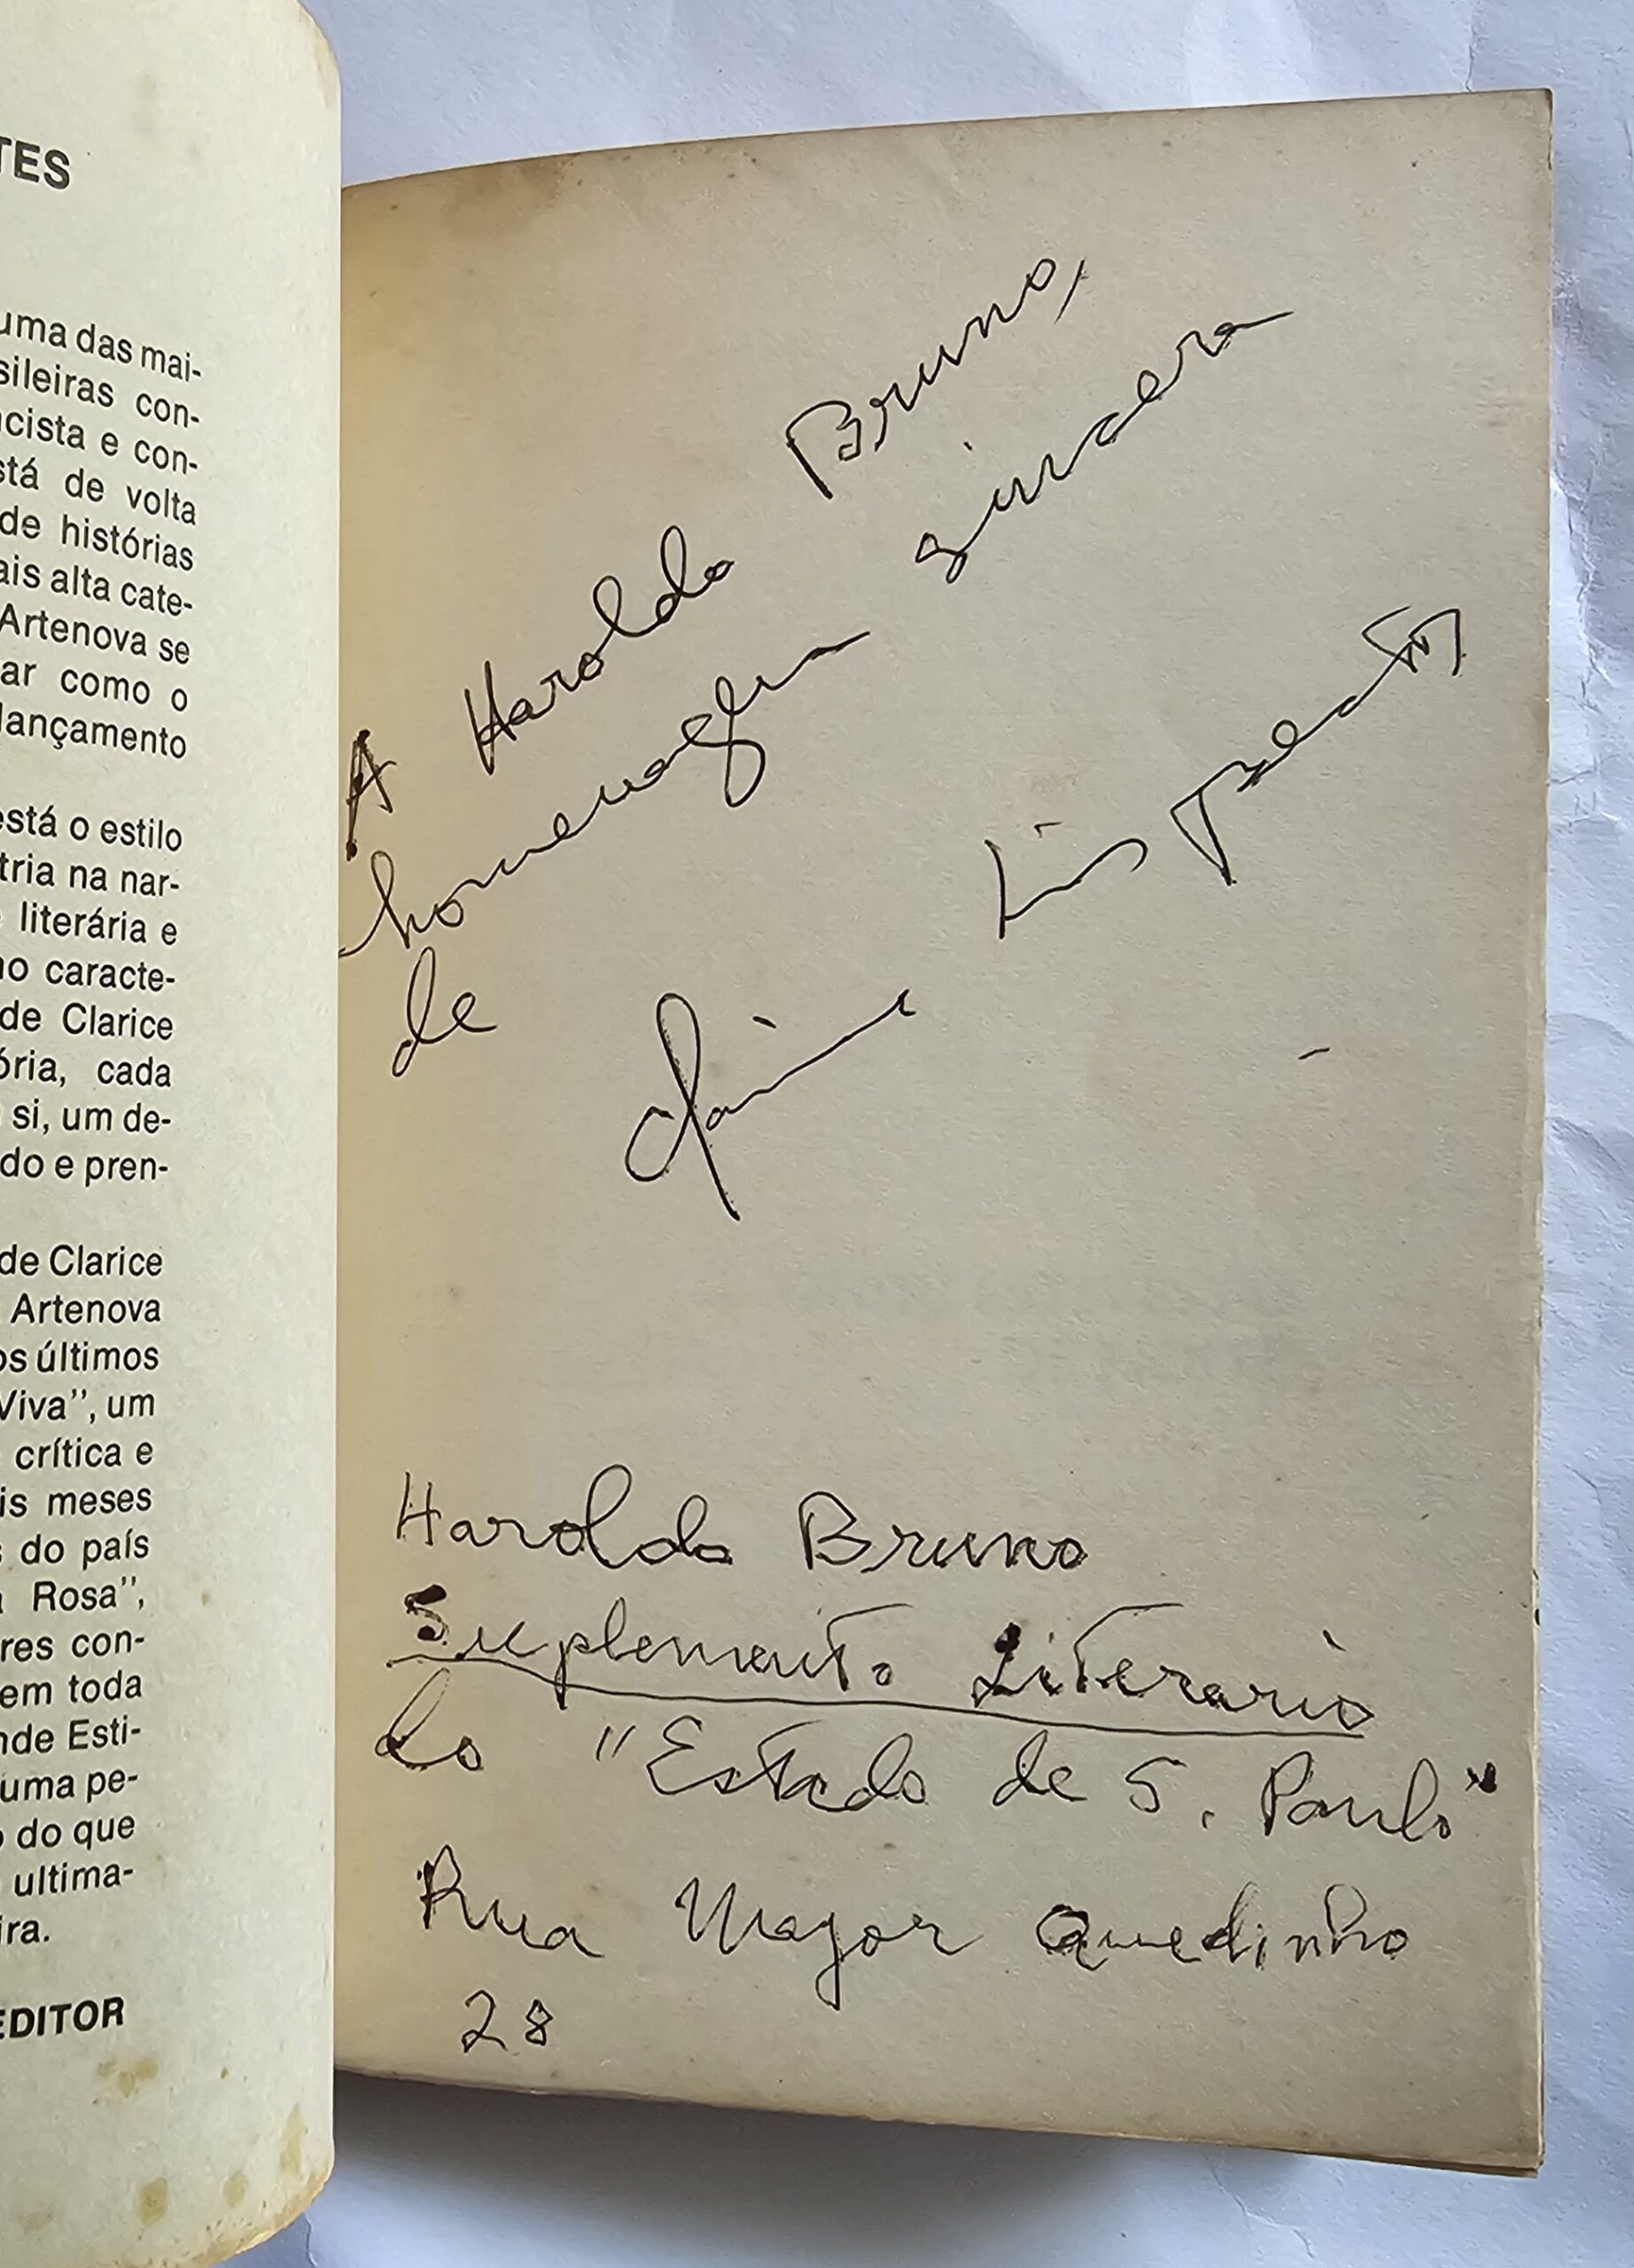 TES
uma das mai-
sileiras con-
cista e con-
stá de volta
de histórias
ais alta cate-
Artenova se
ar como o
lançamento
está o estilo
tria na nar-
literária e
no caracte-
de Clarice
ória, cada
si, um de-
do e pren-
de Clarice
Artenova
os últimos
Viva", um
crítica e
is meses
do país
Rosa",
res con-
em toda
nde Esti-
uma pe-
do que
ultima-
ira.
EDITOR
A Haroldo Bruno,
homenagem sincera
de
Clarice Lispector
Haroldo Bruno
Suplemento Literario
do "Estado de S. Paulo"
Rua Major Quedinho
28